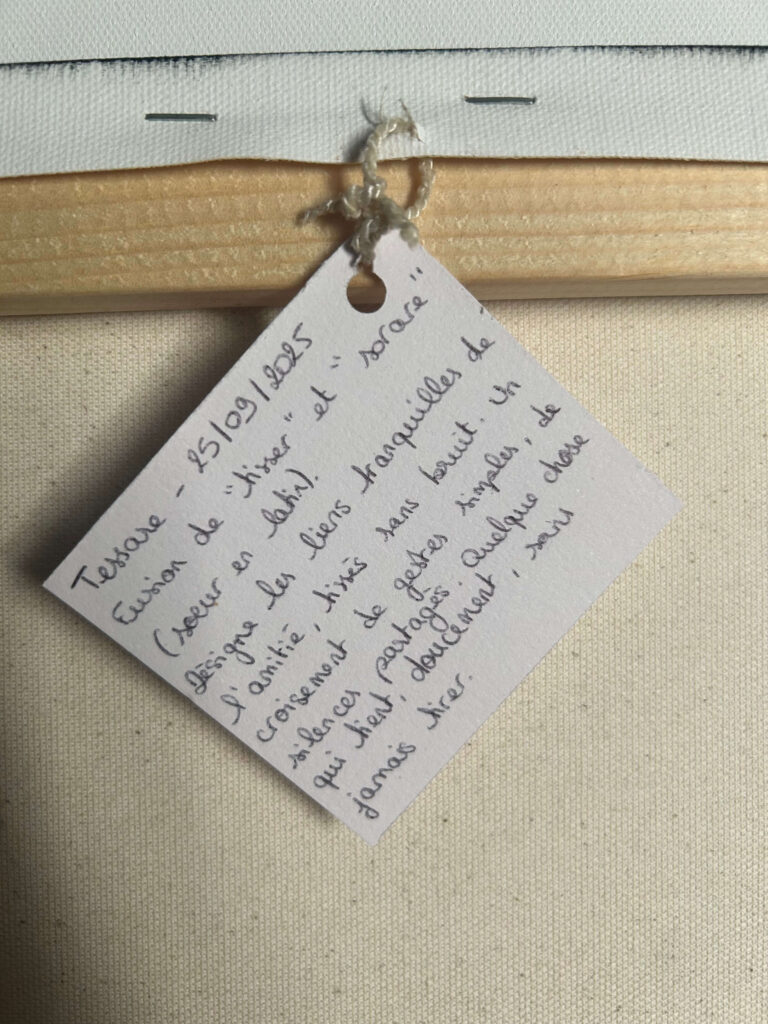 Tessare - 25/09/2025
Fusion de "tisser" et "sorare"
(soeur en latin).
Désigne les liens tranquilles de -
l'amitié, tissés sans bruit. Un
croisement de gestes simples, de
silences partagés. Quelque chose
qui tient, doucement, sans
jamais tirer.